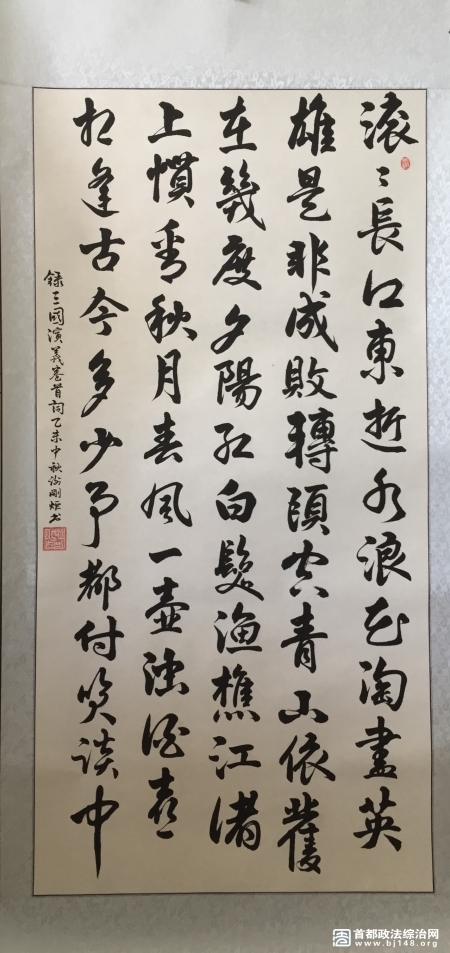 滚〻長江東逝水浪花淘盡英
雄是非成敗轉頭空青山依舊
在幾度夕陽紅白髮漁樵江渚
上慣看秋月春風一壺濁酒喜
相逢古今多少事都付笑談中
録三國演義卷首詞乙未中秋剛书
首都政法综治网
www.bj148.org